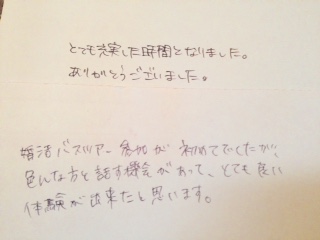 とても充実した時間となりました。
ありがとうございました。
婚活バスツアー参加が初めてでしたが、
色んな方と話す機会があって、とても良い
体験が出来たと思います。